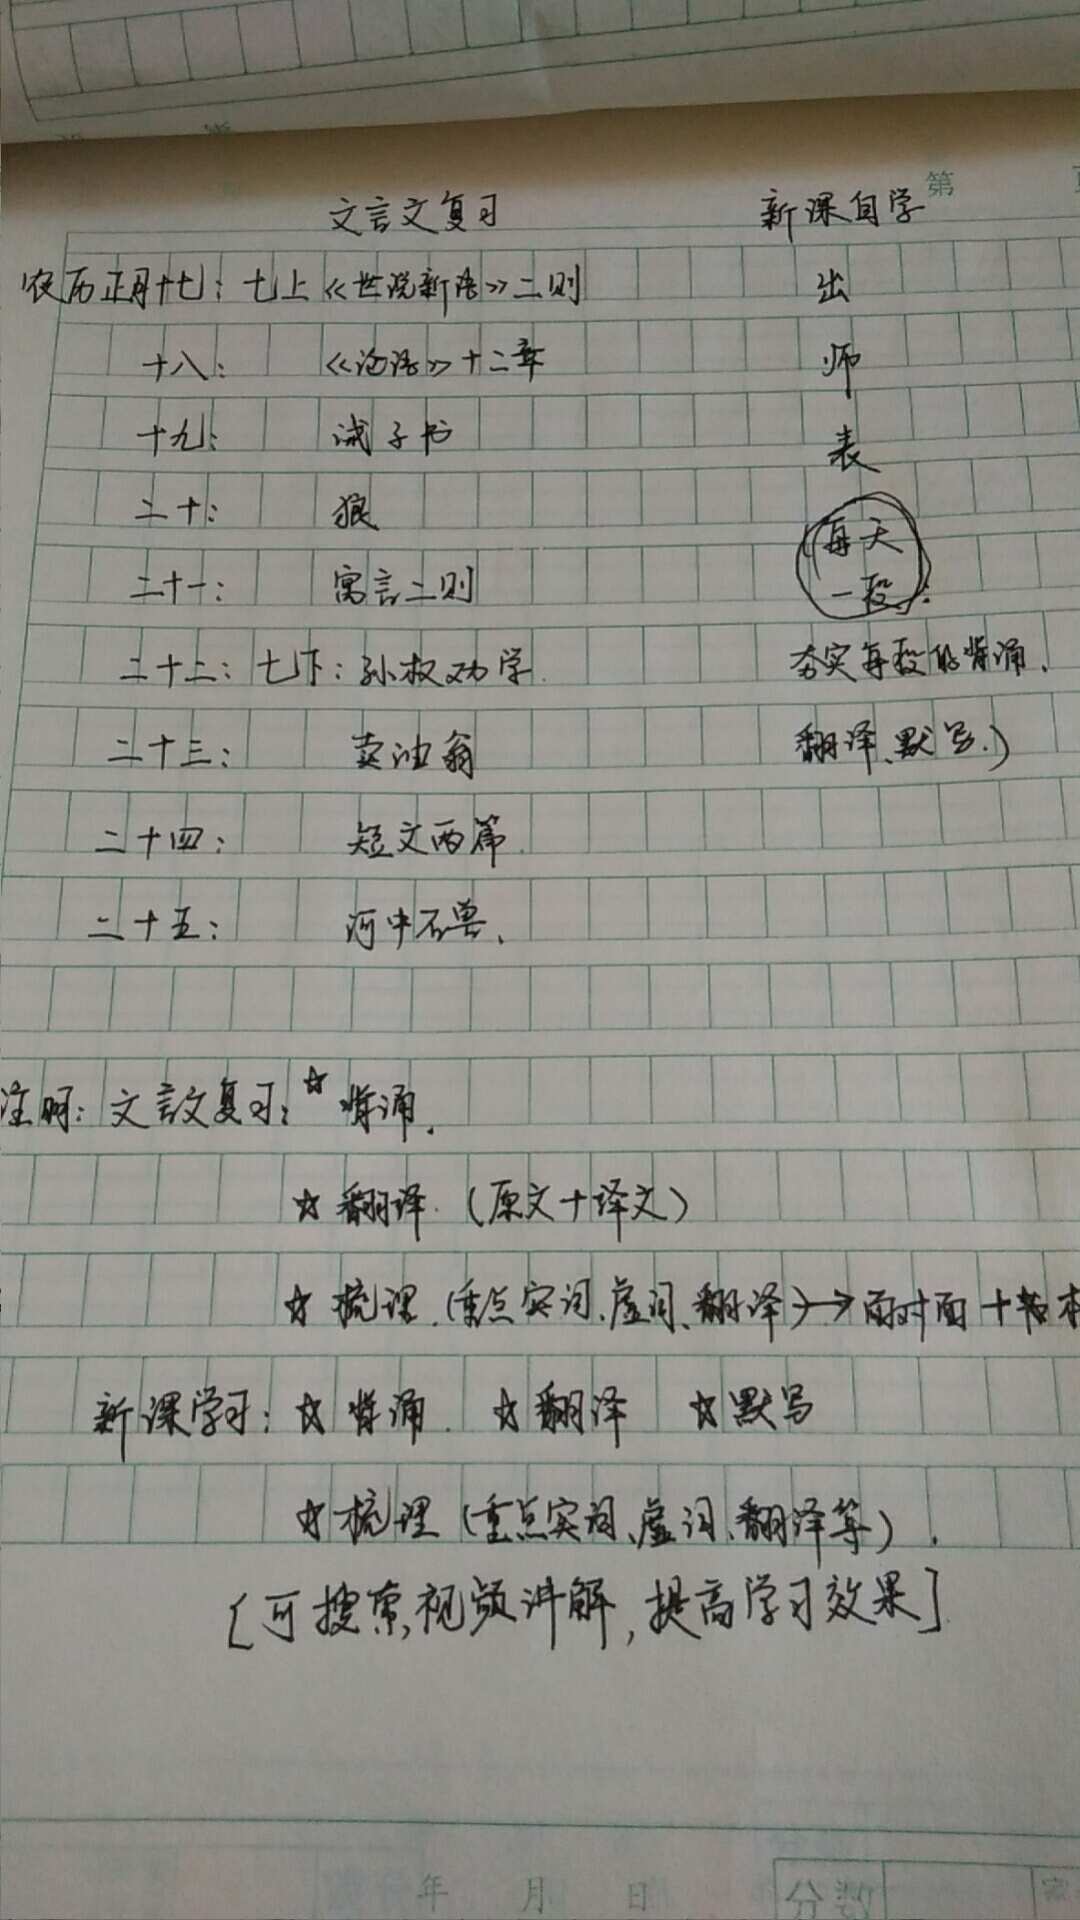 第
文言文复习 新课自学
农历正月十七：七上《世说新语》二则 出
十八： 《论语》十二章 师
十九： 诫子书 表
二十： 狼 (每天
二十一： 寓言二则 一段：
二十二：七下：孙权劝学. 夯实每段的背诵、
二十三： 卖油翁 翻译、默写.)
二十四： 短文两篇.
二十五： 河中石兽.
注明：文言文复习：☆背诵.
☆翻译.(原文+译文)
☆梳理.(重点实词、虚词、翻译)→面对面+书本
新课学习：☆背诵. ☆翻译 ☆默写
☆梳理(重点实词、虚词、翻译等).
[可搜索视频讲解,提高学习效果]
年 月 日 分数